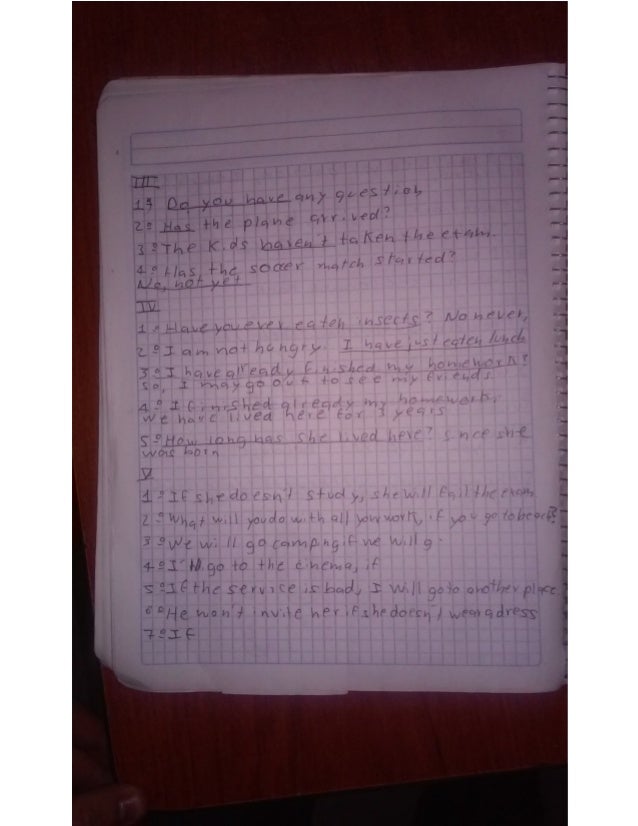 III
1º Do you have any question
2º Has the plane arrived?
3º The kids haven't taken the exam.
4º Has the soccer match started?
No, not yet
IV
1º Have you ever eaten insects? No never,
2º I am not hungry. I have just eaten lunch
3º I have already finished my homework?
so, I may go out to see my friends.
4º I finished already my homework,
we have lived here for 3 years
5º How long has she lived here? since she
was born
V
1º If she doesn't study, she will fail the exam
2º What will you do with all your work, if you go to beach?
3º We will go camping if we will g
4º I'll go to the cinema, if
5º If the service is bad, I will go to another place
6º He won't invite her if she doesn't wear a dress
7º If